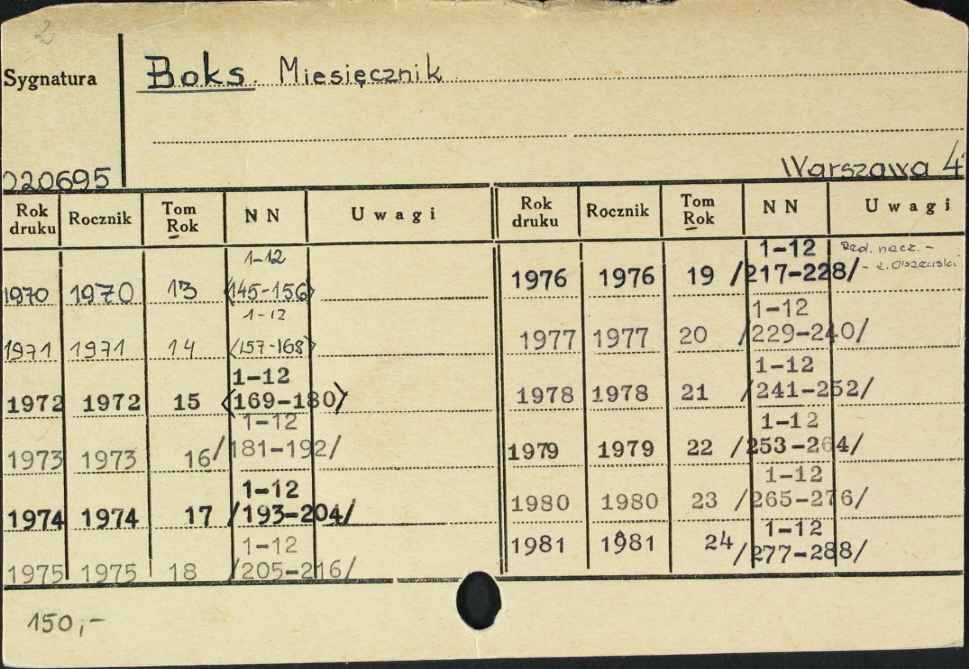 2
Sygnatura
Boks. Miesięcznik
020695
Warszawa 4
Rok druku Rocznik Tom Rok NN Uwagi
1-12
1970 1970 13 <145-156>
1-12
1971 1971 14 <157-168>
1-12
1972 1972 15 <169-180>
1-12
1973 1973 16 /181-192/
1-12
1974 1974 17 /193-204/
1-12
1975 1975 18 /205-216/
Rok druku Rocznik Tom Rok NN Uwagi
1-12 Red. nacz. -
1976 1976 19 /217-228/ -
1-12
1977 1977 20 /229-240/
1-12
1978 1978 21 /241-252/
1-12
1979 1979 22 /253-264/
1-12
1980 1980 23 /265-276/
1-12
1981 1981 24 /277-288/
150,-